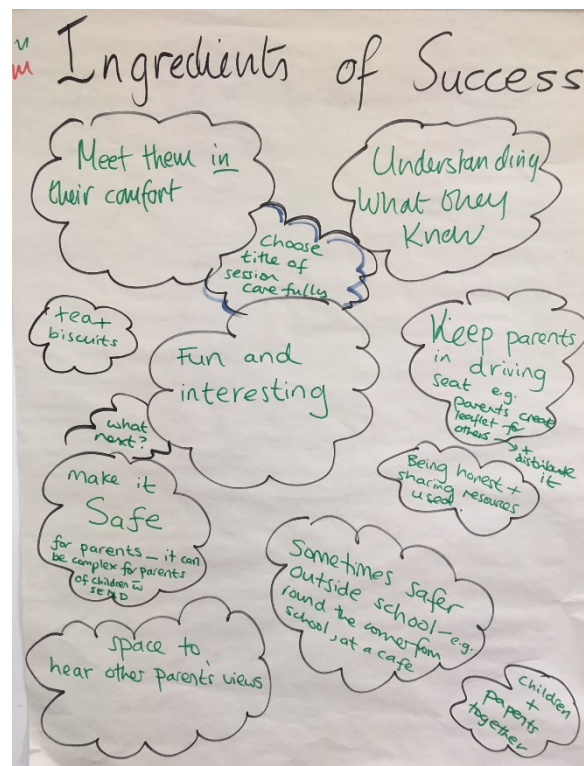 Ingredients of Success
Meet them in
their comfort
Understanding
What they
Know
Choose
title of
session
carefully
tea +
biscuits
Fun and
interesting
Keep parents
in driving
seat e.g.
parents create
leaflet for
others → +
distribute
it
what
next?
Being honest +
sharing resources
used.
make it
Safe
for parents – it can
be complex for parents
of children w
SEND
Sometimes safer
outside school – e.g.
round the corner from
school, at a cafe
space to
hear other parent's views
children
+
parents
together